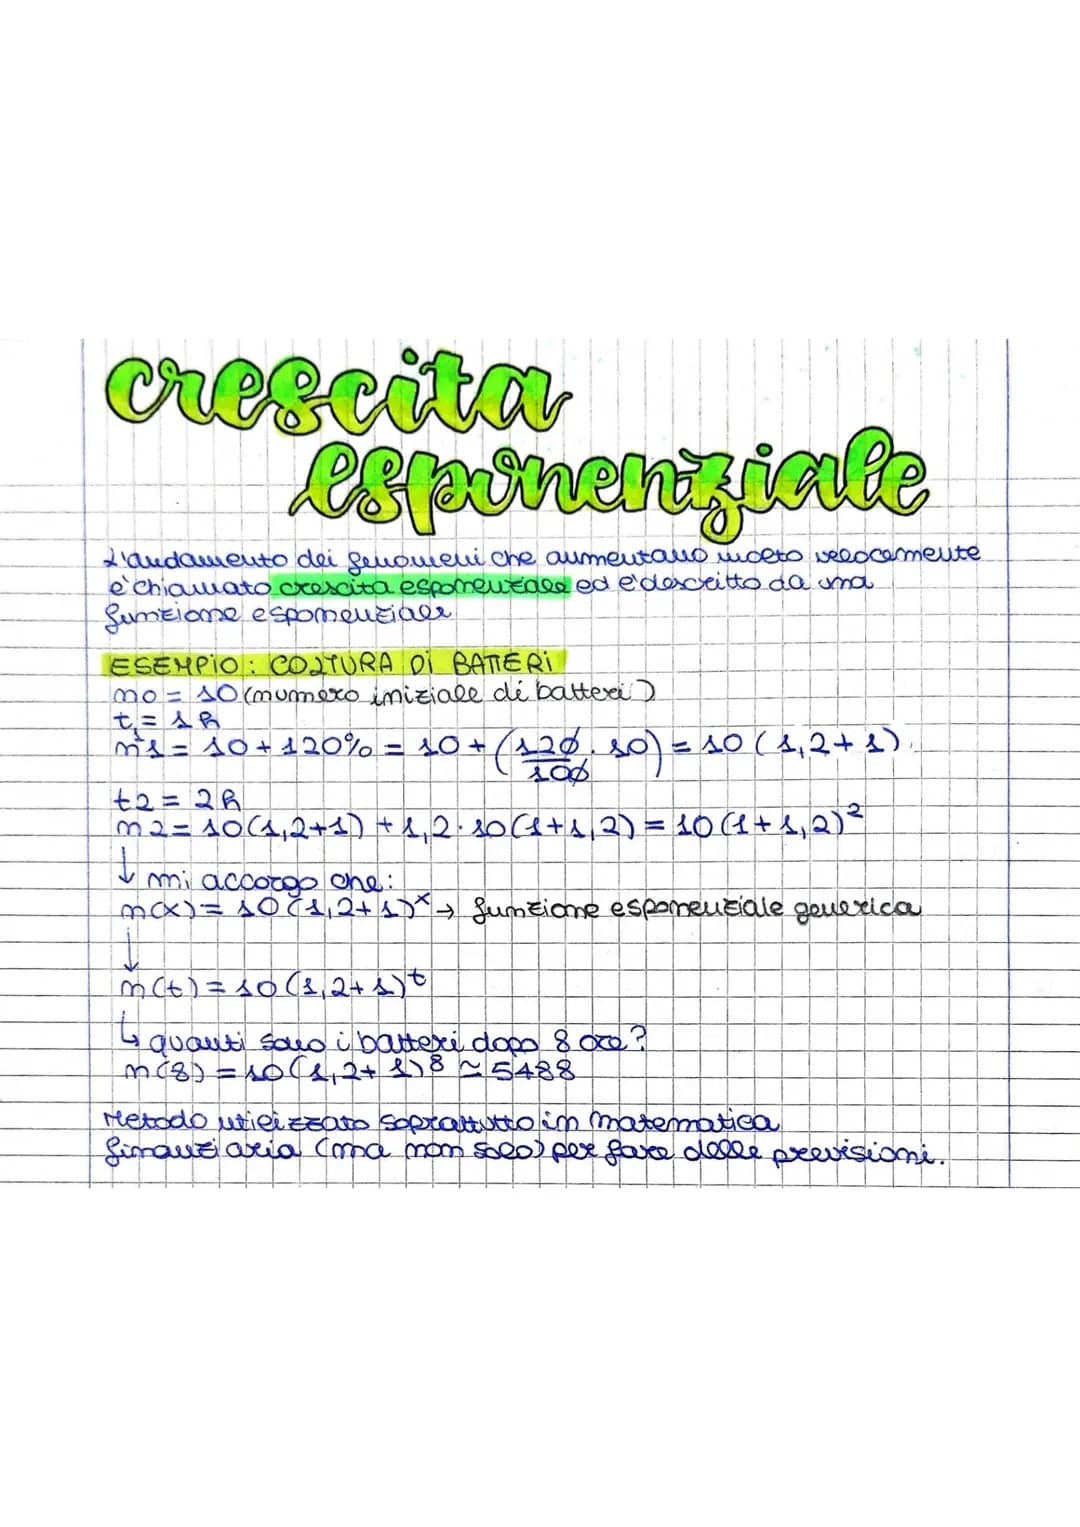 crescita
esponenziale
L'andamento dei fenomeni che aumentano molto velocemente
è chiamato crescita esponenziale ed è descritto da una
funzione esponenziale
ESEMPIO: COLTURA Di BATTERi
n0 = 10 (numero iniziale di batteri)
t1 = 1h
n1 = 10 + 120% = 10 + (120/100 · 10) = 10 (1,2 + 1)
t2 = 2h
n2 = 10(1,2+1) + 1,2 · 10(1+1,2) = 10(1+1,2)²
↓ mi accorgo che:
n(x) = 10 (1,2+1)ˣ → funzione esponenziale generica
↓
n(t) = 10 (1,2+1)ᵗ
↳ quanti sono i batteri dopo 8 ore?
n(8) = 10 (1,2+1)⁸ ≃ 5488
Metodo utilizzato soprattutto in matematica
finanziaria (ma non solo) per fare delle previsioni.